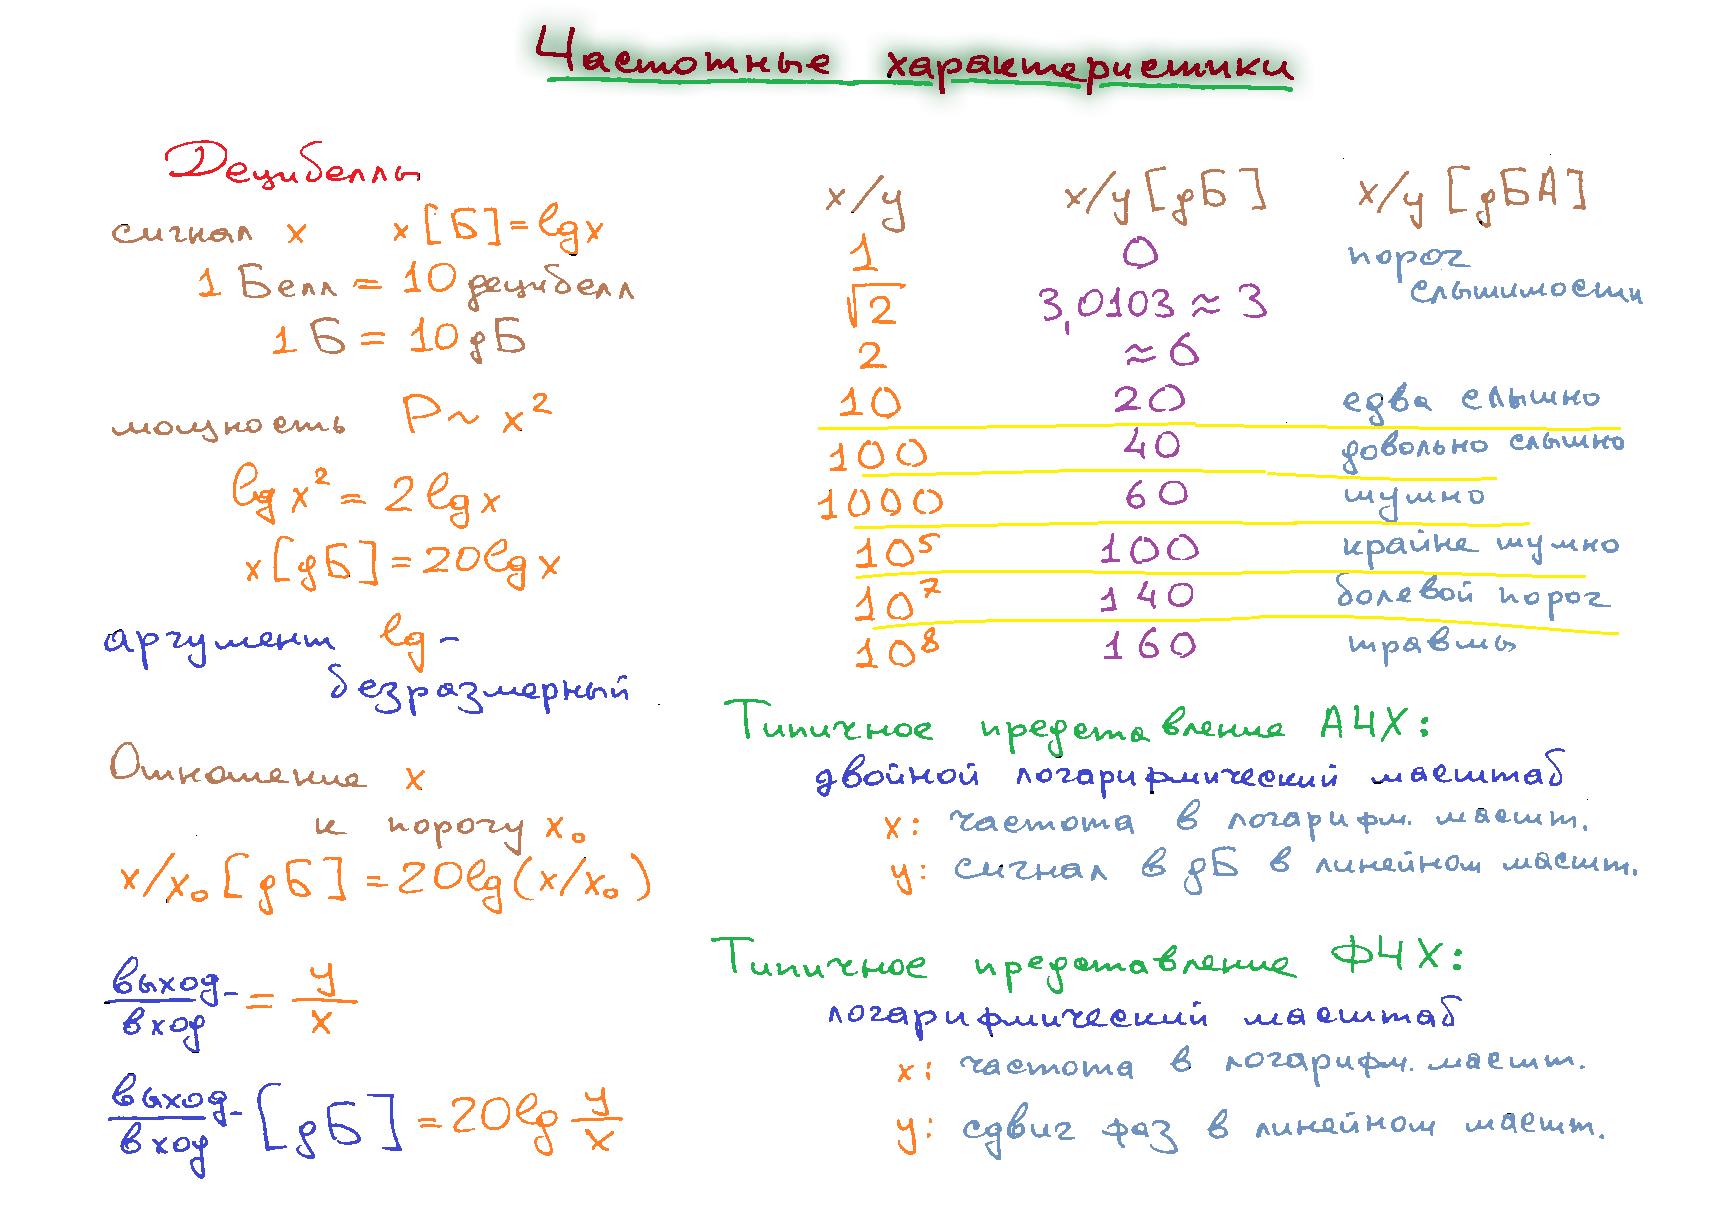 Частотные характеристики
Децибеллы
сигнал x x[Б]=lgx
1 Белл = 10 децибелл
1 Б = 10 дБ
мощность P ~ x²
lg x² = 2 lg x
x[дБ] = 20 lg x
аргумент lg -
безразмерный
Отношение x
к порогу x₀
x/x₀ [дБ] = 20 lg (x/x₀)
выход/вход = y/x
выход/вход [дБ] = 20 lg y/x
x/y x/y [дБ] x/y [дБА]
1 0 порог
слышимости
√2 3,0103 ≈ 3
2 ≈ 6
10 20 едва слышно
100 40 довольно слышно
1000 60 шумно
10⁵ 100 крайне шумно
10⁷ 140 болевой порог
10⁸ 160 травмы
Типичное представление АЧХ:
двойной логарифмический масштаб
x: частота в логарифм. масшт.
y: сигнал в дБ в линейном масшт.
Типичное представление ФЧХ:
логарифмический масштаб
x: частота в логарифм. масшт.
y: сдвиг фаз в линейном масшт.